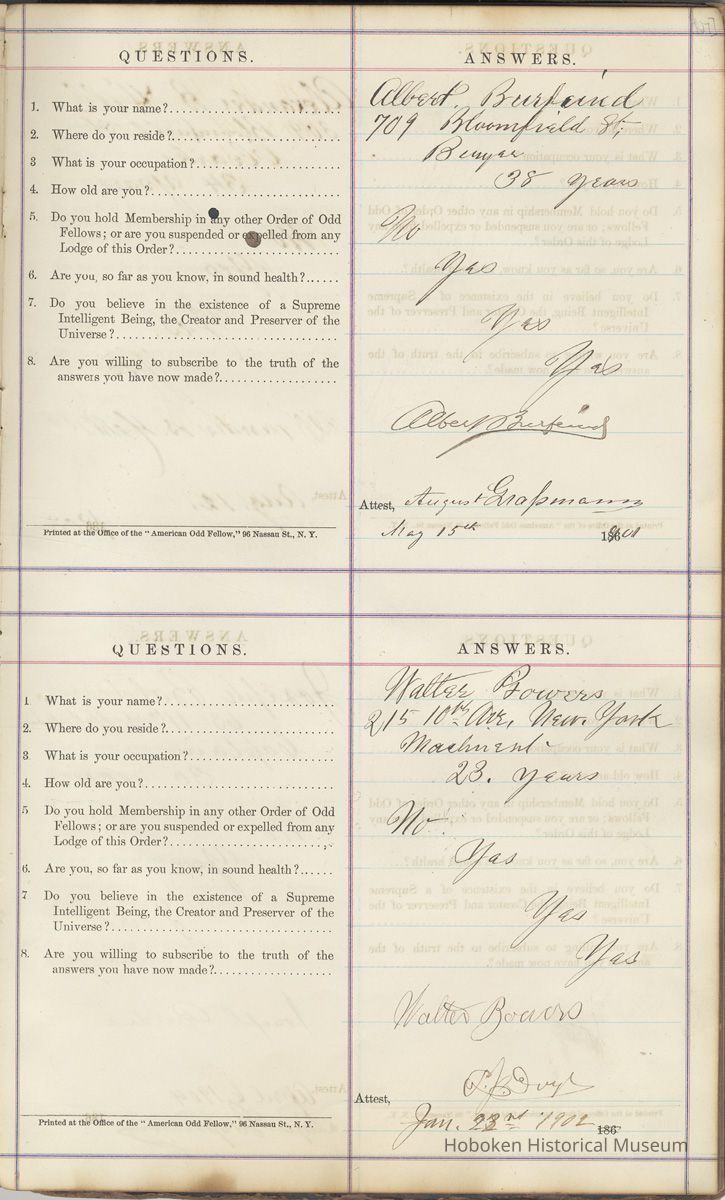 QUESTIONS.
ANSWERS.
1. What is your name?
Albert Burfeind
2. Where do you reside?
709 Bloomfield St,
3 What is your occupation?
4. How old are you?
38 years
5. Do you hold Membership in any other Order of Odd
Fellows; or are you suspended or expelled from any
Lodge of this Order?
No
6. Are you, so far as you know, in sound health?
Yas
7. Do you believe in the existence of a Supreme
Intelligent Being, the Creator and Preserver of the
Universe?
Yas
8. Are you willing to subscribe to the truth of the
answers you have now made?
Yas
Albert Burfeind
Attest, August Graßmann
May 15th 1901
Printed at the Office of the "American Odd Fellow," 96 Nassau St., N. Y.
QUESTIONS.
ANSWERS.
1 What is your name?
Walter Bowers
2. Where do you reside?
215 10th Ave, New. York
3. What is your occupation?
Machnent
4. How old are you?
23. years
5 Do you hold Membership in any other Order of Odd
Fellows; or are you suspended or expelled from any
Lodge of this Order?
No
6. Are you, so far as you know, in sound health?
Yas
7 Do you believe in the existence of a Supreme
Intelligent Being, the Creator and Preserver of the
Universe?
Yas
8. Are you willing to subscribe to the truth of the
answers you have now made?
Yas
Walter Bowers
Attest,
Jan. 23rd 1902 186
Printed at the Office of the "American Odd Fellow," 96 Nassau St., N. Y.
Hoboken Historical Museum